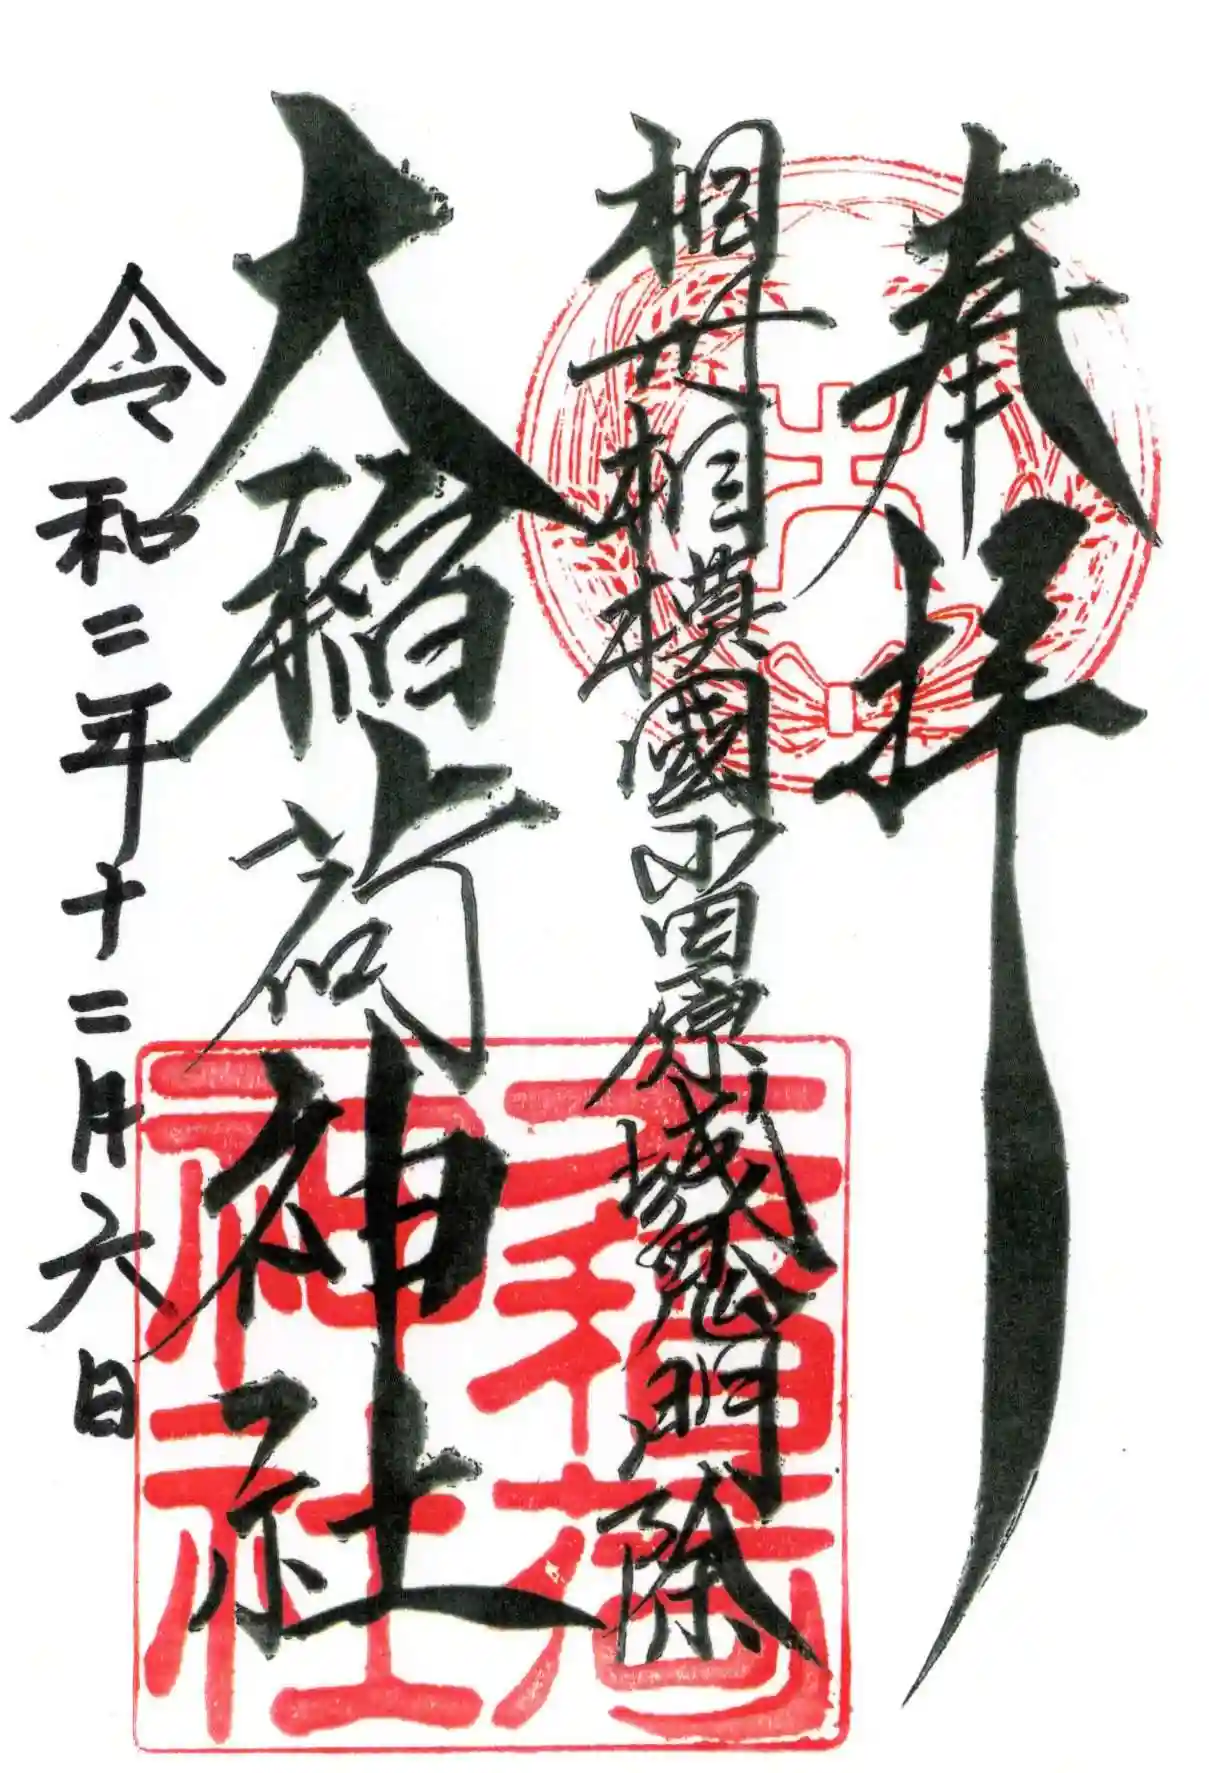 奉拝
相模國小田原城鬼門除
大稲荷神社
令和二年十二月六日
大稲荷
神社